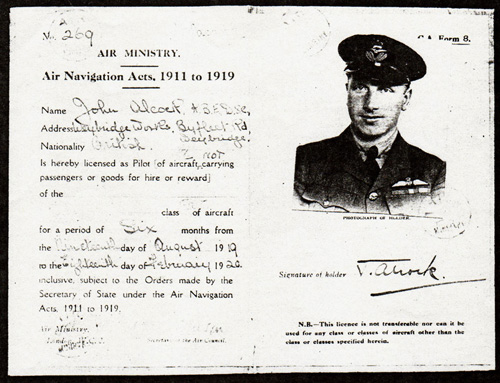 No. 269
AIR MINISTRY.
Air Navigation Acts, 1911 to 1919
Name John Alcock,
Address Weybridge Works, Byfleet Rd
Weybridge,
Nationality British.
not
Is hereby licensed as Pilot [of aircraft carrying
passengers or goods for hire or reward]
of the
class of aircraft
for a period of Six months from
the Nineteenth day of August 1919
to the Eighteenth day of February 1920
inclusive, subject to the Orders made by the
Secretary of State under the Air Navigation
Acts, 1911 to 1919.
Air Ministry,
London, W.C.2.
Secretary of the Air Council.
C.A. Form 8.
PHOTOGRAPH OF HOLDER.
Signature of holder J. Alcock.
N.B.—This licence is not transferable nor can it be
used for any class or classes of aircraft other than the
class or classes specified herein.